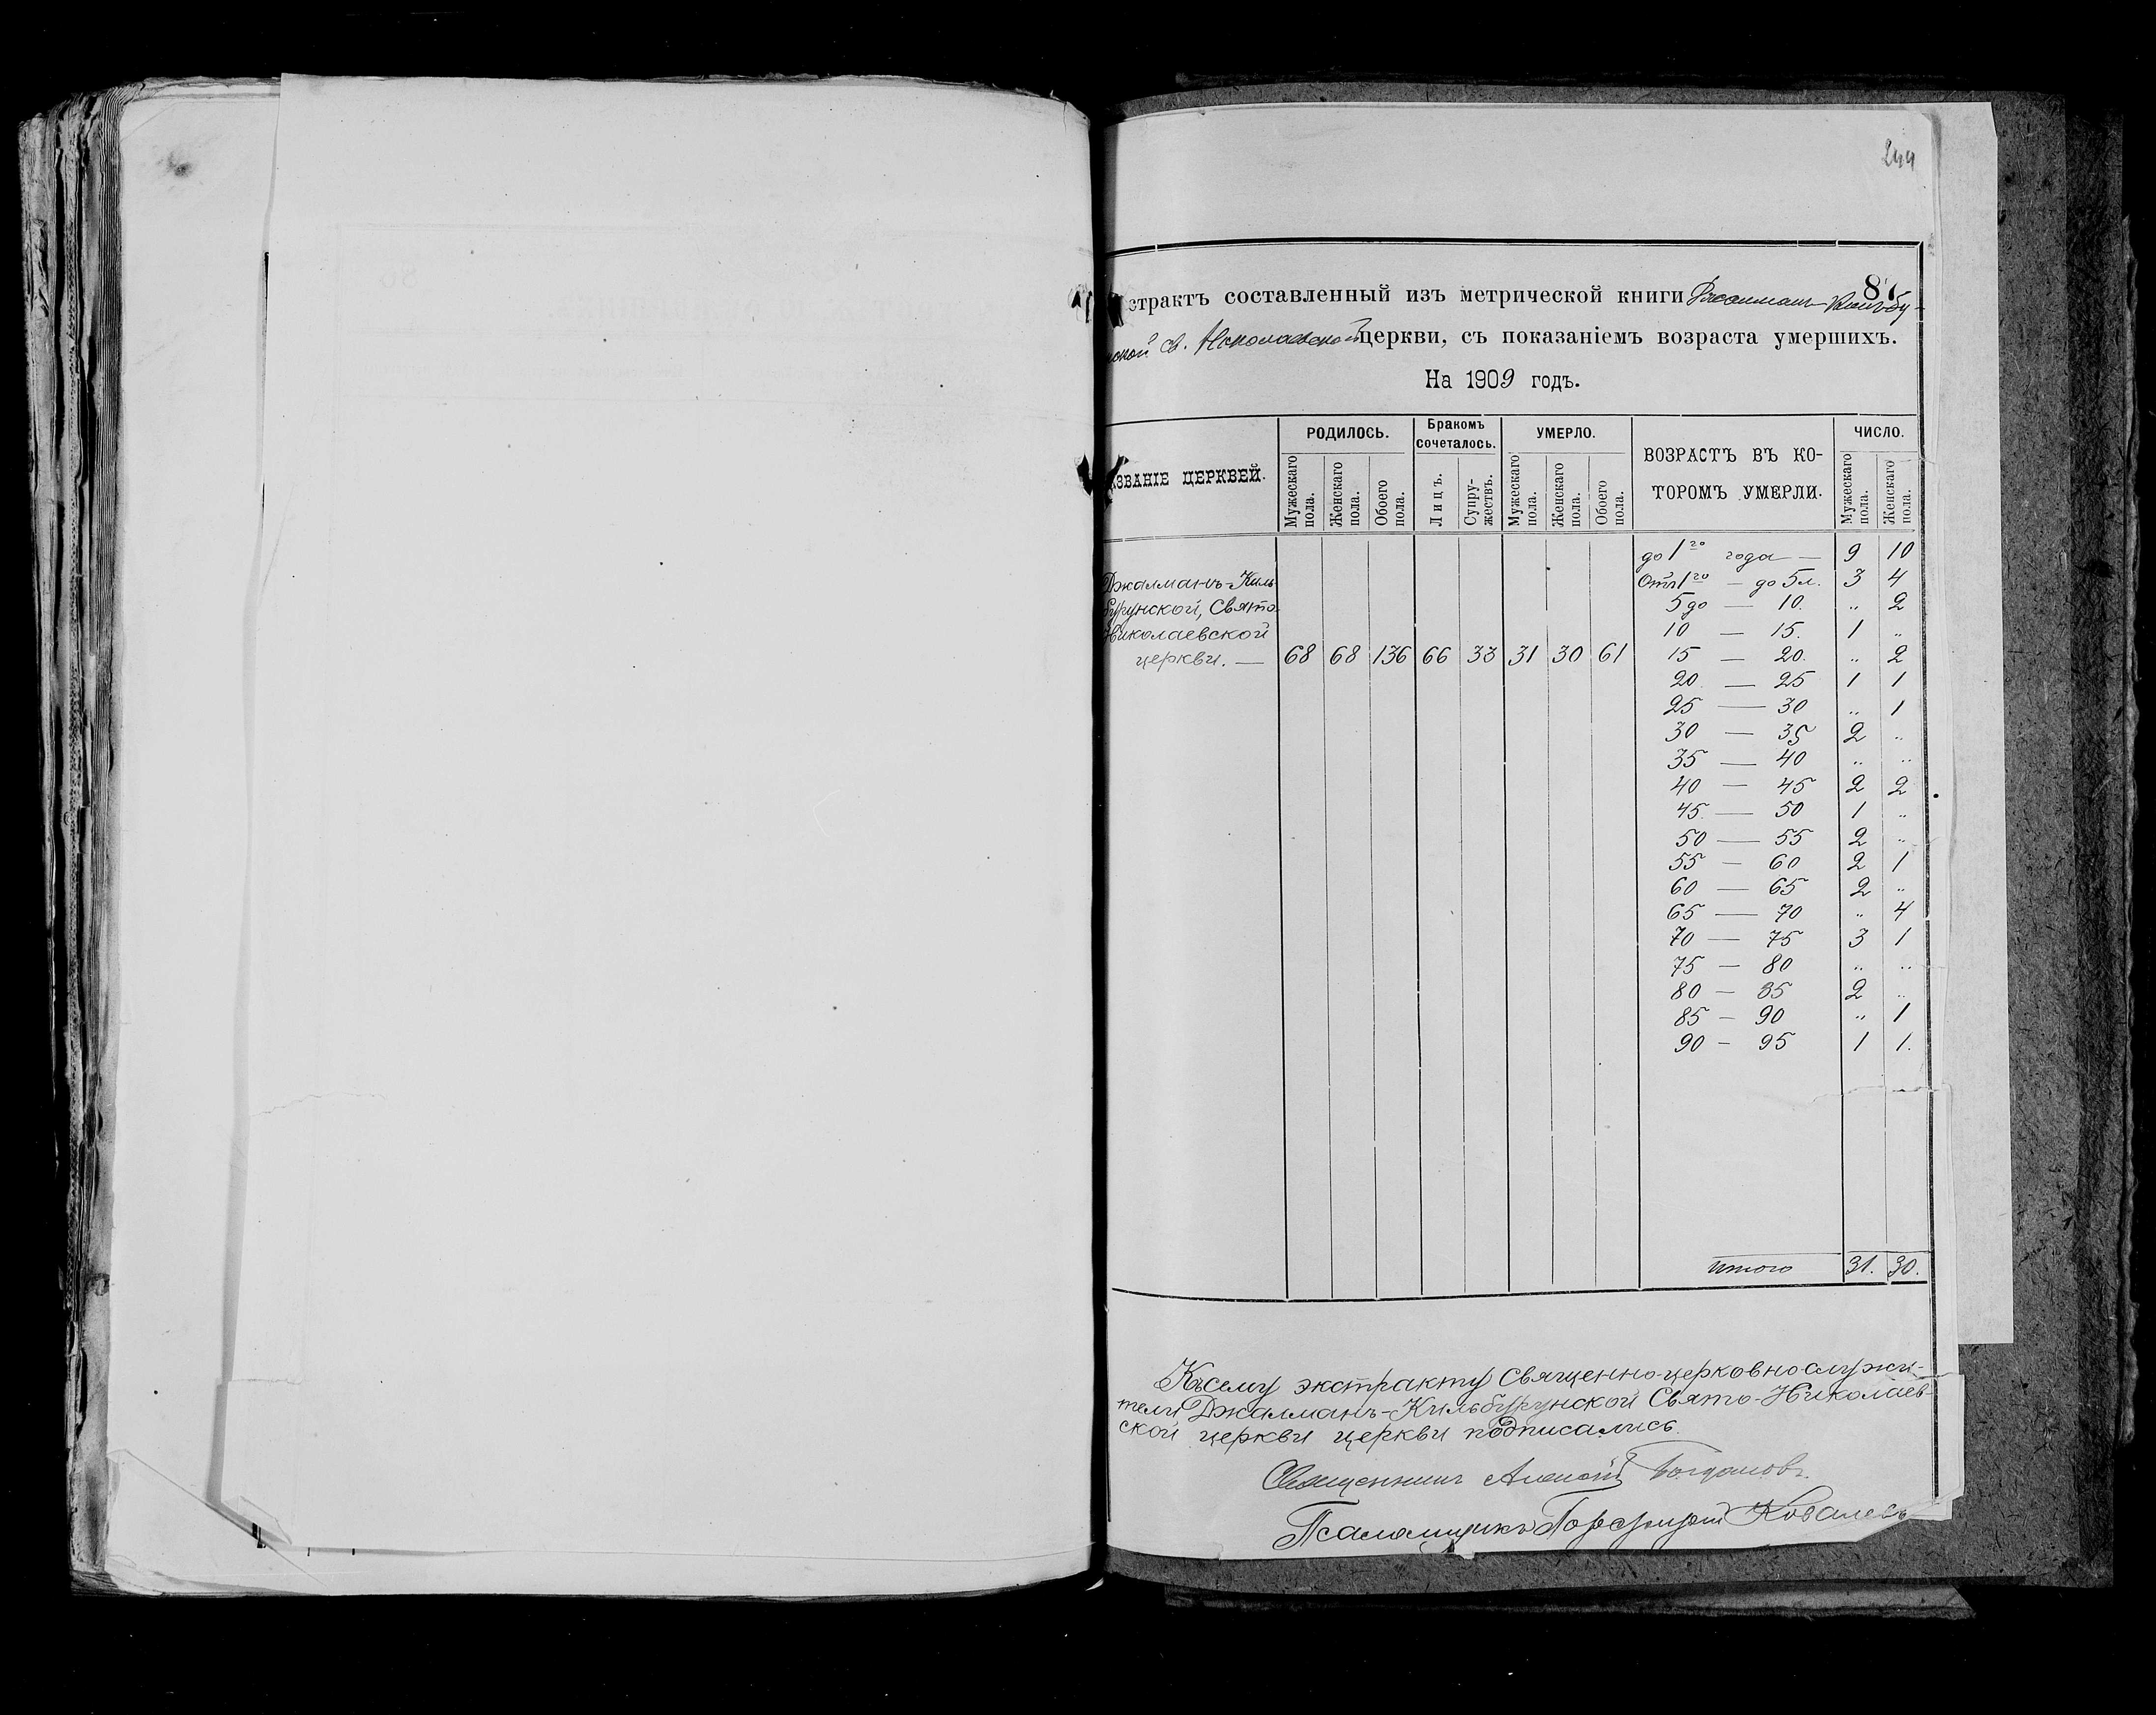 244
87
страктъ составленный изъ метрической книги Джалманъ-Кильбу-
ской св. Николаевской церкви, съ показаніемъ возраста умершихъ.
На 1909 годъ.
ЗВАНІЕ ЦЕРКВЕЙ. РОДИЛОСЬ. Бракомъ сочеталось. УМЕРЛО. ВОЗРАСТЪ ВЪ КО- ТОРОМЪ УМЕРЛИ. ЧИСЛО.
Мужескаго пола. Женскаго пола. Обоего пола. Лицъ. Супру-жествъ. Мужескаго пола. Женскаго пола. Обоего пола. Мужескаго пола. Женскаго пола.
до 1го года — 9 10
Джалманъ-Киль- Отъ 1го — до 5 л. 3 4
бурунской, Свято- 5 до — 10. " 2
Николаевской 10 — 15. 1 "
церкви. — 68 68 136 66 33 31 30 61 15 — 20. " 2
20 — 25 1 1
25 — 30 " 1
30 — 35 2 "
35 — 40 " "
40 — 45 2 2
45. — 50 1 "
50 — 55 2 "
55 — 60 2 1
60 — 65 2 "
65 — 70 " 4
70 — 75 3 1
75 — 80 " "
80 — 85 2 "
85 — 90 " 1
90 — 95 1 1.
итого 31. 30.
Къ сему экстракту священно-церковно-служи-
тели Джалманъ-Кильбурунской Свято-Николаев-
ской церкви церкви подписались.
Священникъ Алексій Богдановъ.
Псаломщикъ Порфирій Ковалевъ